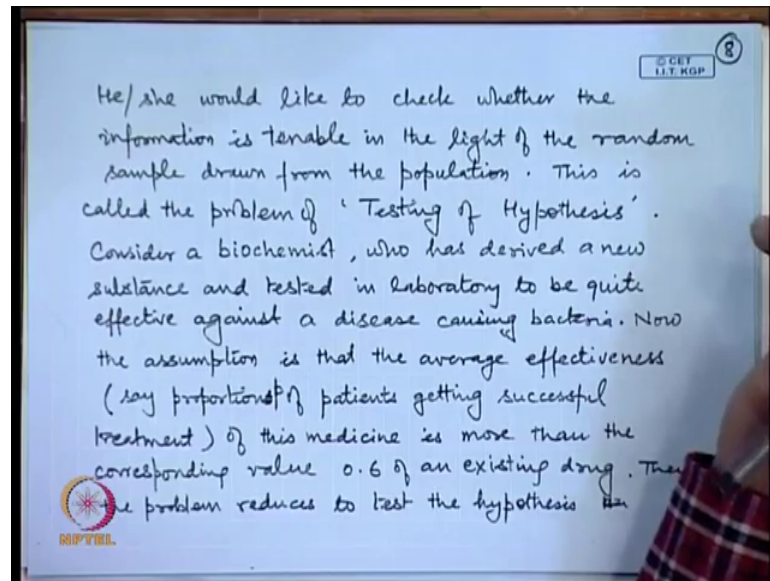 8
© CET
I.I.T. KGP
He/she would like to check whether the
information is tenable in the light of the random
sample drawn from the population. This is
called the problem of 'Testing of Hypothesis'.
Consider a biochemist, who has derived a new
substance and tested in laboratory to be quite
effective against a disease causing bacteria. Now
the assumption is that the average effectiveness
(say proportion p of patients getting successful
treatment) of this medicine is more than the
corresponding value 0.6 of an existing drug. Then
the problem reduces to test the hypothesis
NPTEL